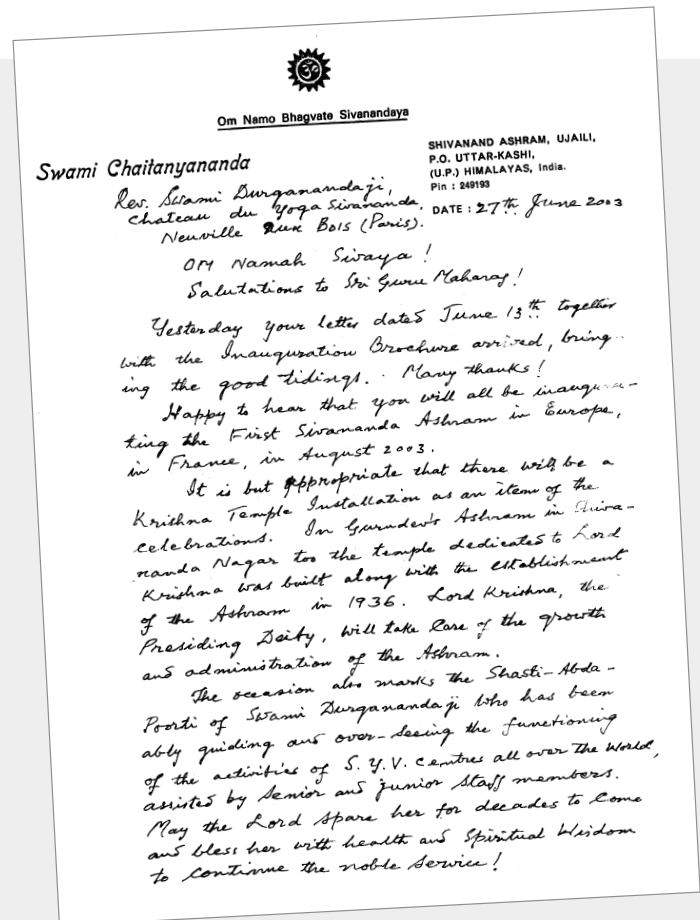 ॐ
Om Namo Bhagvate Sivanandaya
Swami Chaitanyananda
SHIVANAND ASHRAM, UJAILI,
P.O. UTTAR-KASHI,
(U.P.) HIMALAYAS, India.
Pin : 249193
DATE : 27th June 2003
Rev. Swami Durganandaji,
Chateau du Yoga Sivananda,
Neuville aux Bois (Paris).
OM Namah Sivaya!
Salutations to Sri Guru Maharaj!
Yesterday your letter dated June 13th together
with the Inauguration Brochure arrived, bring-
ing the good tidings. Many thanks!
Happy to hear that you will all be inaugura-
ting the First Sivananda Ashram in Europe,
in France, in August 2003.
It is but appropriate that there will be a
Krishna Temple Installation as an item of the
celebrations. In Gurudev's Ashram in Shiva-
nanda Nagar too the temple dedicated to Lord
Krishna was built along with the establishment
of the Ashram in 1936. Lord Krishna, the
Presiding Deity, will take care of the growth
and administration of the Ashram.
The occasion also marks the Shasti-Abda-
Poorti of Swami Durganandaji who has been
ably guiding and over-seeing the functioning
of the activities of S.Y.V. centres all over the World,
assisted by senior and junior staff members.
May the Lord spare her for decades to come
and bless her with health and Spiritual Wisdom
to continue the noble service!